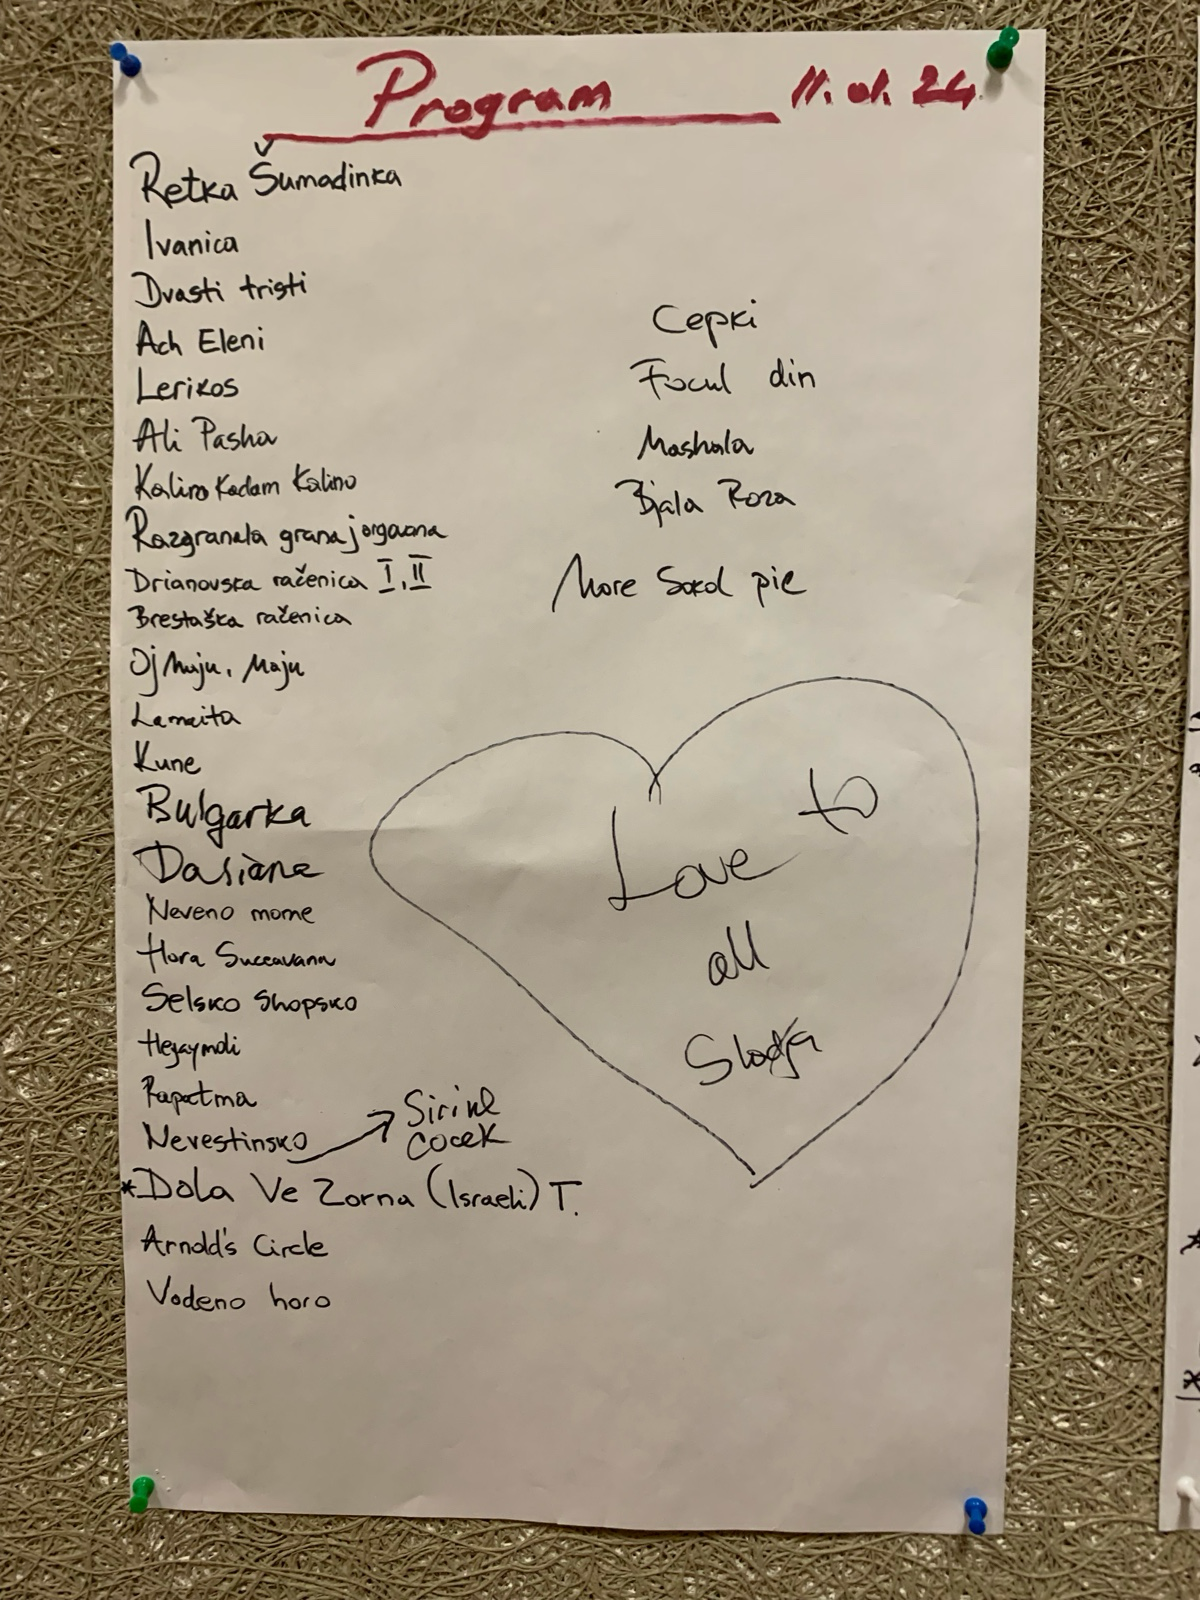 Program 11. 01. 24
Retka Šumadinka
Ivanica
Dvasti tristi
Ach Eleni
Lerikos
Ali Pasha
Kalino Kadam Kalino
Razgranala grana jorgovana
Drianovska račenica I, II
Brestaška račenica
Oj Maju, Maju
Lamaita
Kune
Bulgarka
Dasiana
Neveno mome
Hora Succavana
Selsko Shopsko
Papatma
Nevestinsko
Sirine
cocek
*Dola Ve Zorna (Israeli) T.
Arnold's Circle
Vodeno horo
Cepki
Focul din
Mashala
Bjala Roza
More Sokol pie
Love to
all
Slodja